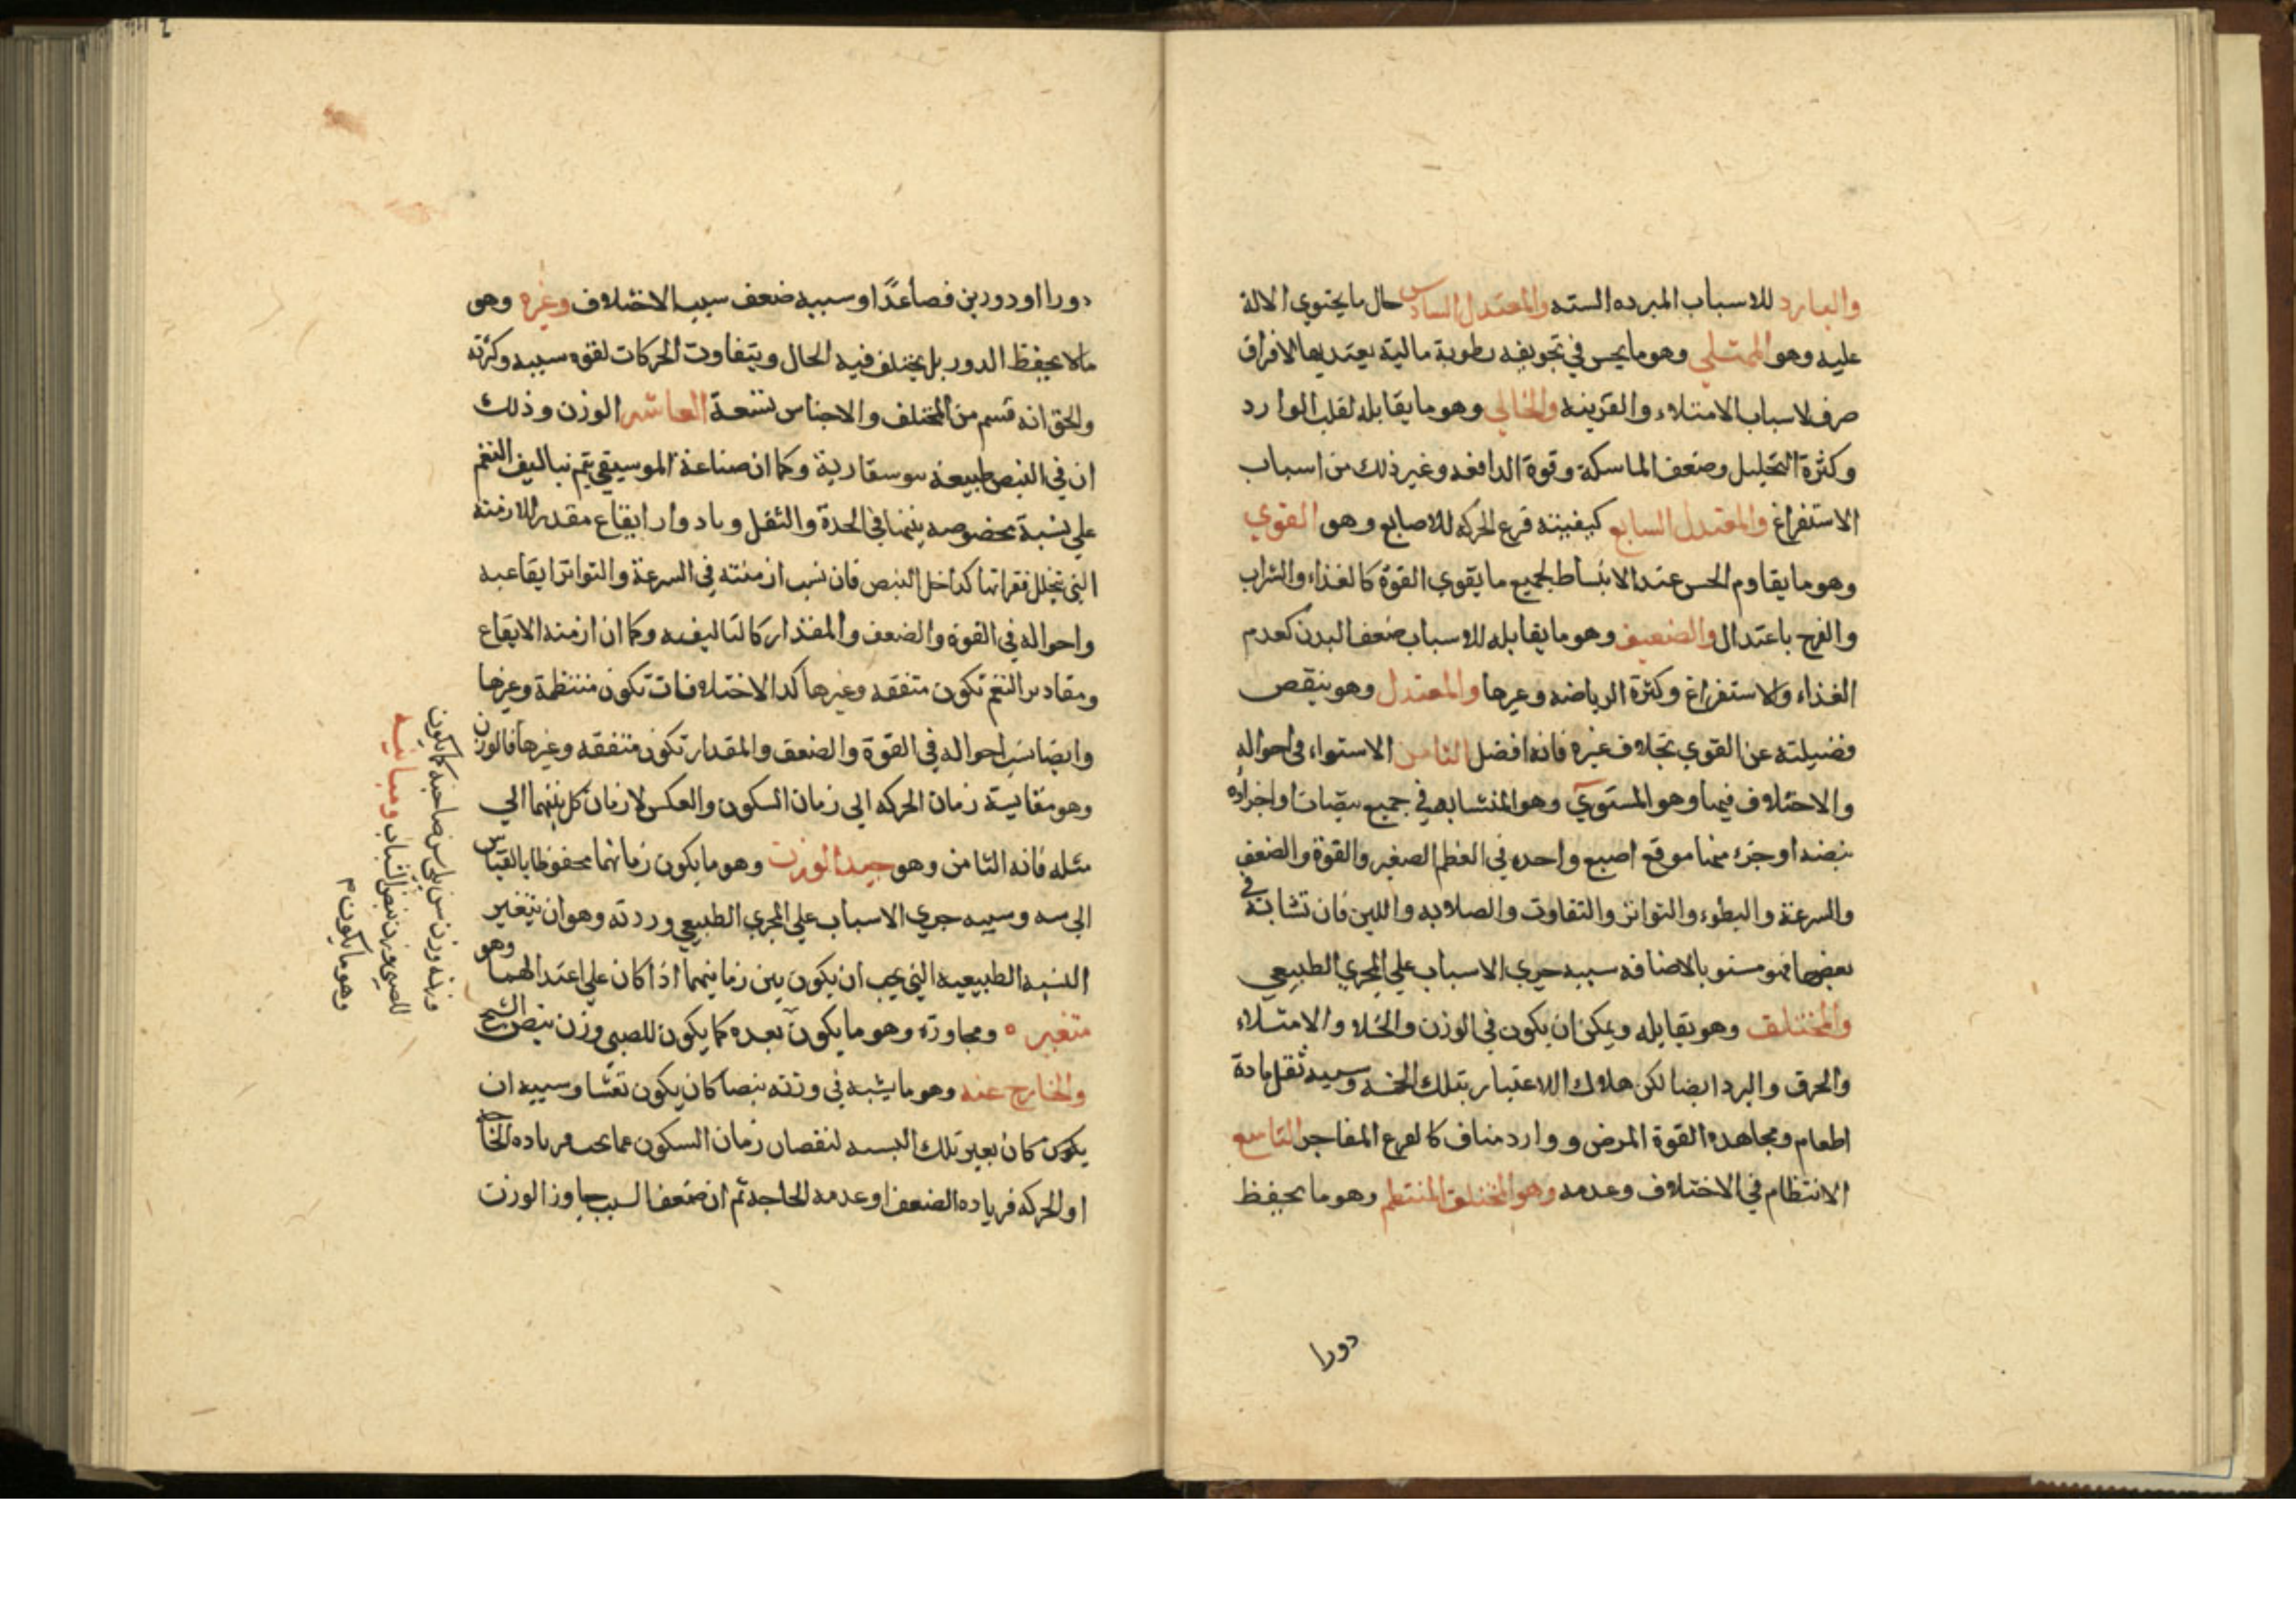 والبارد للاسباب المبرده السته والمعتدل السادس حال ما يحتوي الالة
عليه وهو الممتلي وهو ما يحس في تجويفه رطوبة مالية يعتد بها لافراق
صرف لاسباب الامتلاء والقرينه والخالي وهو ما يقابله لقلب الوارد
وكثرة التحليل وضعف الماسكة وقوة الدافعه وغير ذلك من اسباب
الاستفراغ والمعتدل السابع كيفيته قرع الحركه للاصابع وهو القوي
وهو ما يقاوم الحس عند الانبساط لجميع ما يقوي القوة كالغذاء والشراب
والفرح باعتدال والضعيف وهو ما يقابله للاسباب ضعف البدن كعدم
الغذاء والاستفراغ وكثرة الرياضه وغيرها والمعتدل وهو ينقص
فضيلته عن القوي بخلاف غيره فانه افضل الثامن الاستواء في احواله
والاختلاف فيها وهو المستوي وهو المتشابه في جميع نبضات او اجزاؤه
نبضه او جزء منها موقع اصبع واحده في العظم الصغير والقوة والضعف
والسرعة والبطوء والتواتر والتفاوت والصلابه واللين فان تشابه في
بعضها فهو مستو بالاضافه سببه جري الاسباب علي المجري الطبيعي
والمختلف وهو يقابله ويمكن ان يكون في الوزن والخلاء والامتلاء
والحرق والبرد ايضا لكن هلاك الاعتبار بتلك الخسه وسببه ثقل مادة
اطعام ومجاهده القوة المرض ووارد مناف كالفرع المفاجي التاسع
الانتظام في الاختلاف وعدمه وهو المختلف المنتظم وهو ما يحفظ
دورا
دورا او دورين فصاعدًا وسببه ضعف سبب الاختلاف وغيره وهو
مالا يحفظ الدور بل يختلف فيه الحال ويتفاوت الحركات لقوه سببه وكثرته
والحق انه قسم من المختلف والاجناس تسعة العاشر الوزن وذلك
ان في النبض طبيعة موسيقارية وكما ان صناعة الموسيقي يتم بتاليف النغم
علي نسبة مخصوصه بينها في الحدة والثقل وبادوار ايقاع مقدر للازمنه
التي تتخلل فقراتها كداخل النبض فان نسب ازمنته في السرعة والتواتر ايقاعيه
واحواله في القوة والضعف والمقدار كالتاليفيه وكما ان ازمنه الايقاع
ومقادير النغم تكون متفقه وغيرها كدا الاختلافات تكون منتظمة وغيرها
وايضا نسب احواله في القوة والضعف والمقدار تكون متفقه وغيرها فالوزن
وهو مقايسة زمان الحركه الي زمان السكون والعكس لا زمان كل بينهما الي
مثله فانه الثامن وهو جيد الوزن وهو ما يكون زمانهما محفوظا بالقياس
الي سه وسببه جري الاسباب علي المجري الطبيعي وردته وهو ان يتغير
النسبه الطبيعيه التي يجب ان يكون بين زمانيهما اذا كان علي اعتدالهما وهو
متغير ه ومجاوزه وهو ما يكون بعده كما يكون للصبي وزن نبض الشيخ
والخارج عنه وهو ما يشبه في وزنه نبضا كان يكون تغشا وسببه ان
يكون كان بغير تلك النسبه لنقصان زمان السكون عما يجب مر ياده الخا
او الحركه فرياده الضعف او عدمه الحاجه ثم ان ضعف السبب جاوز الوزن
وزنه وزن سن يلي سن صاحبه كما يكون
للصبي وزن نبض الشباب ومباينه
وهو ما يكون م